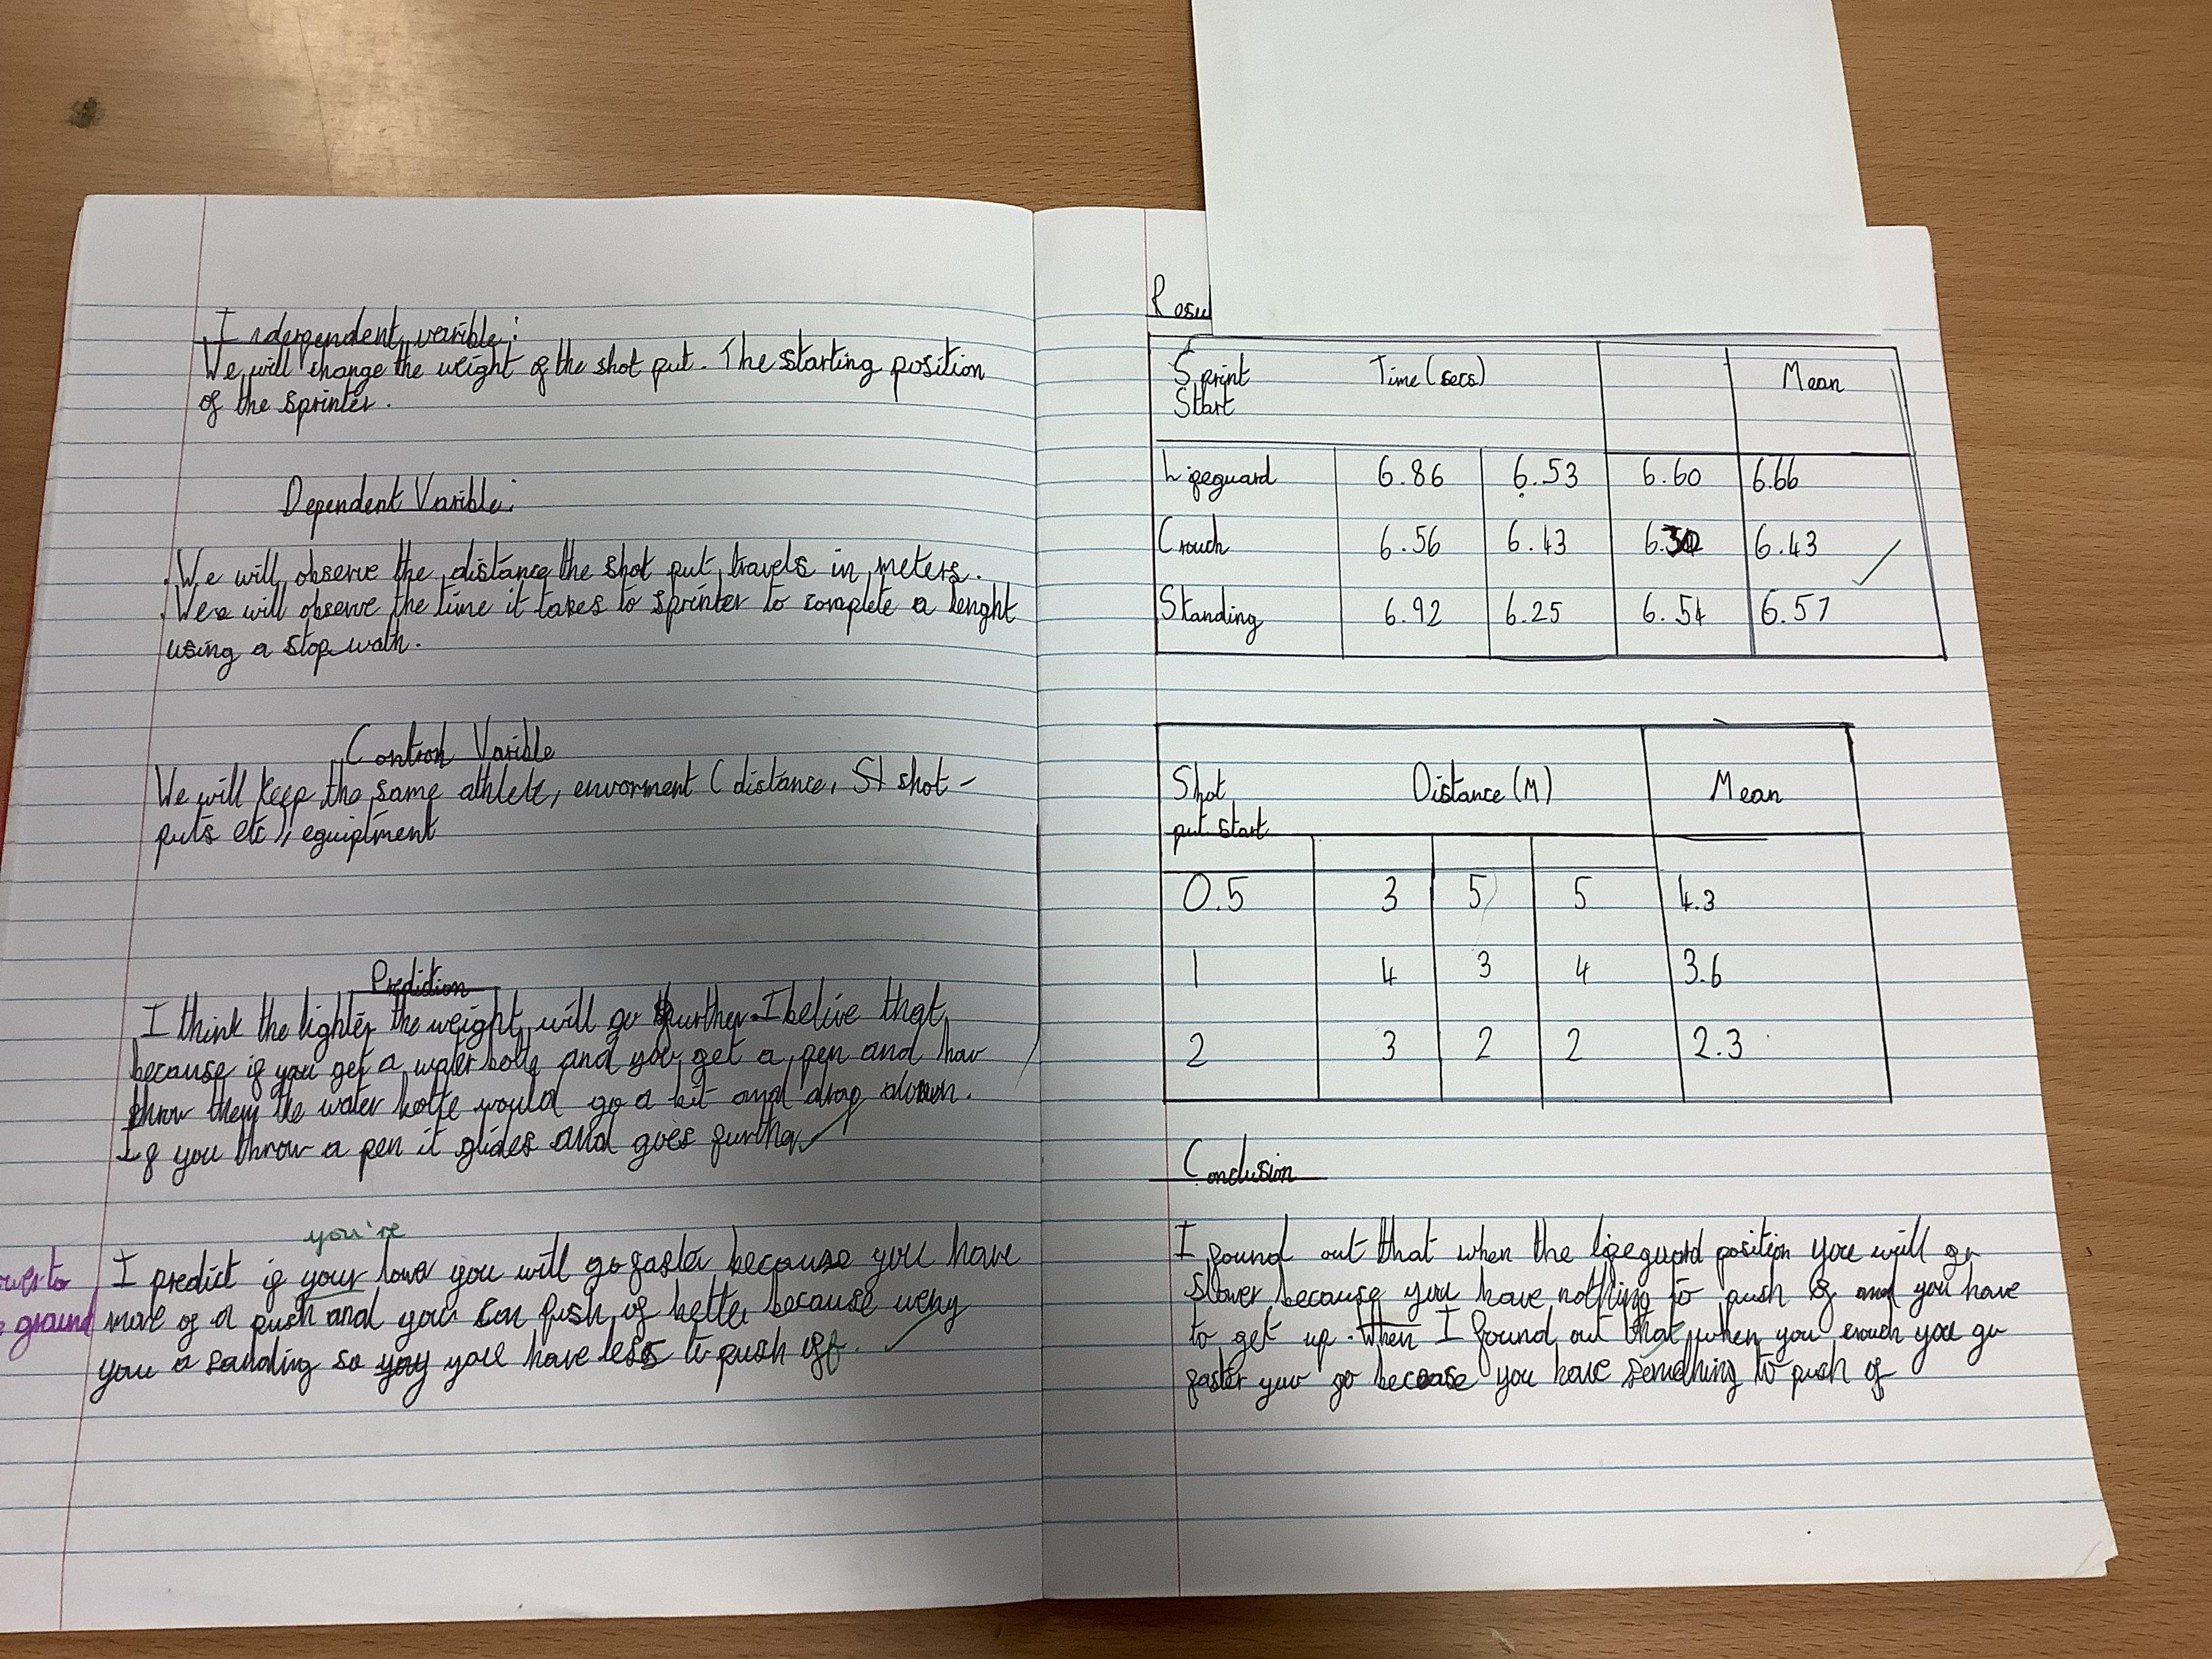 Independent varible:
We will change the weight of the shot put. The starting position
of the sprinter.
Dependent Varible:
. We will observe the distance the shot put travels in meters.
. We will observe the time it takes to sprinter to complete a lenght
using a stop wath.
Control Varible
We will keep the same athlete, envorment ( distance, St shot-
puts etc), equiptment
Prediction
I think the lighter the weight will go further. I belive that
because if you get a water botle and you get a pen and
throw them the water botte would go a bit and drop down.
If you throw a pen it glides and goes further
you're
I predict if your lower you will go faster because you have
ground more of a push and you can push of better because
you a sanding so you have less to push off.
Resu
Sprint Start Time (secs) Mean
Lifeguard 6.86 6.53 6.60 6.66
Crouch 6.56 6.43 6.43
Standing 6.92 6.25 6.54 6.57
Shot put start Distance (M) Mean
0.5 3 5 5 4.3
1 4 3 4 3.6
2 3 2 2 2.3
Conclusion
I found out that when the lifeguard position you will go
slower because you have nothing to push of and you have
to get up. When I found out that when you crouch you go
faster you go because you have something to push of